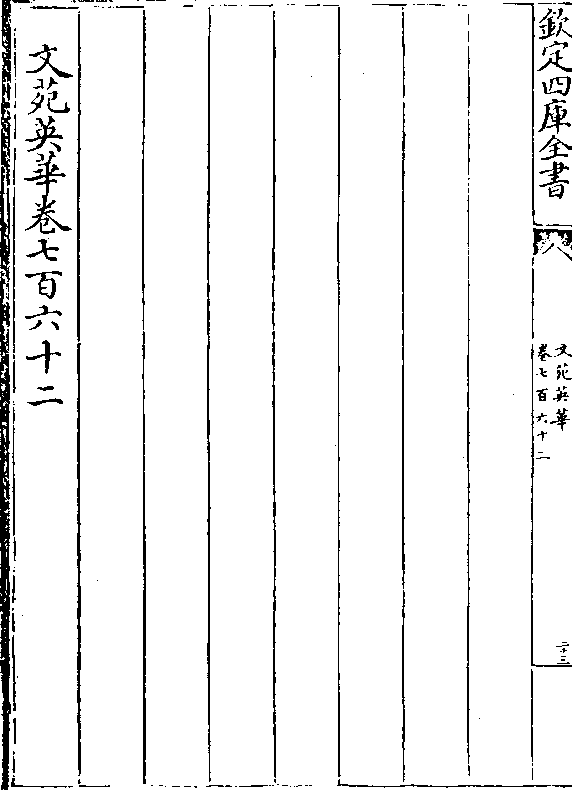 欽定四庫全書
文苑英華
卷七百六十二
二十三
文苑英華卷七百六十二